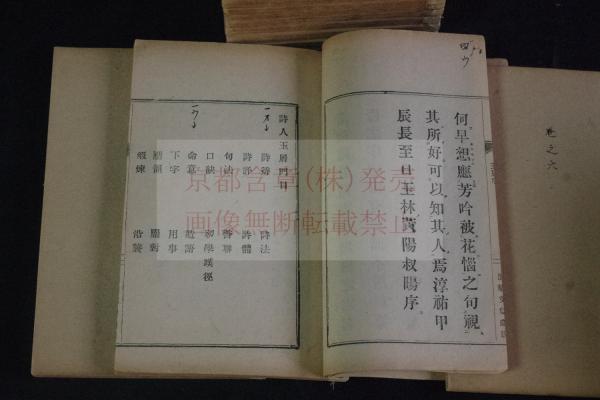 何早想應芳吟被花惱之句視
其所好可以知其人焉淳祐甲
辰長至日玉林黃陽叔暘序
詩人玉屑門目
詩辨 詩法
詩評 詩體
句法
口訣 初學蹊徑
命意 造語
下字 用事
壓韻 屬對
鍛煉 沿襲
卷之六
京都含章(株)発売
画像無断転載禁止